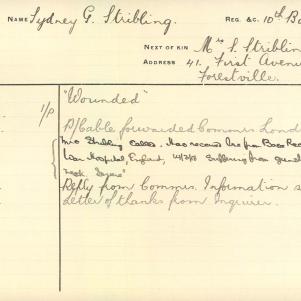 NAME Sydney G. Stribling. REG. &C. 10th Ba
NEXT OF KIN Mrs S. Striblin
ADDRESS 41. First Avenu
Forestville.
"Wounded"
1/P R/Cable forwarded Commrs Lond
Mrs Stribling called. Has received
War Hospital, England, suffering from
Reply from Commrs. Information s
Letter of thanks from Inquirer.